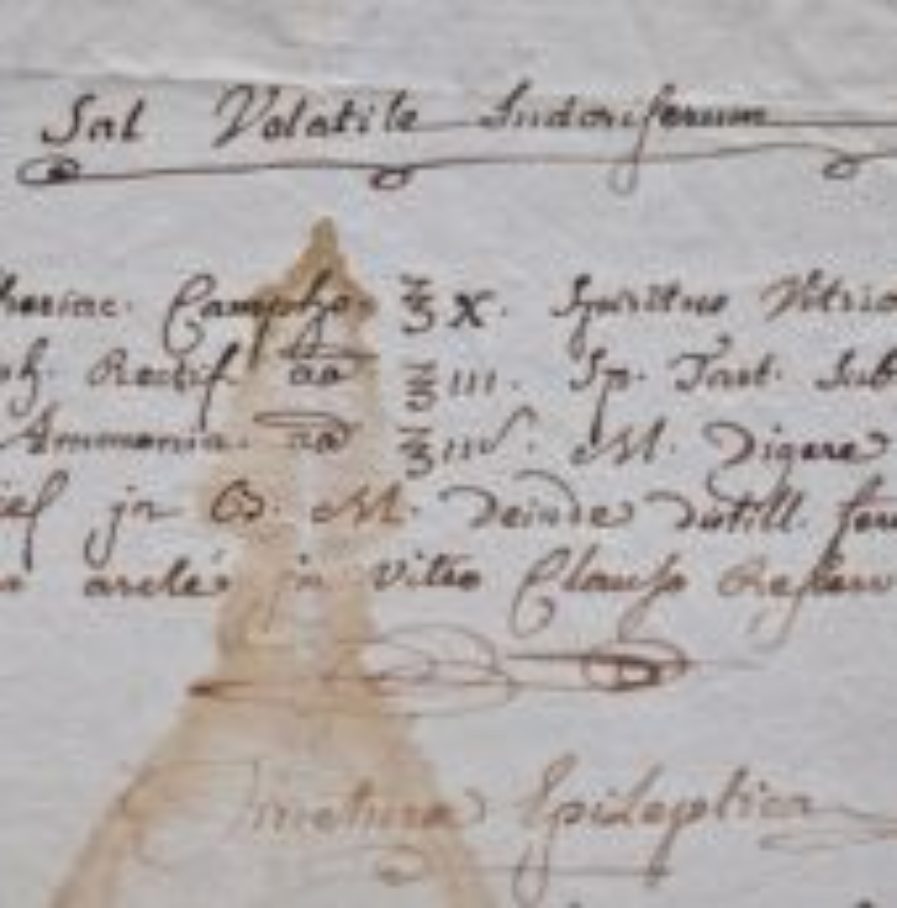 Sal Volatile Sudoriferum
heriac. Campho. ℥ x. Spiritus Vitrio
Rectif aa ℥ iii. Sp. Tart. Sub
Ammonia. aa ℥ iiß. M. Digere
jn B. M. Deinde distill.
arcte jn vitro Clauso Reserv
Tinctura Epileptica